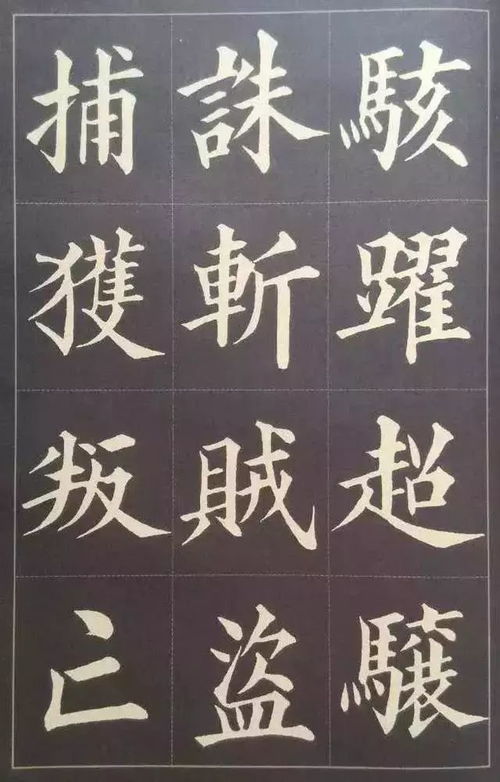 駭躍超驤
誅斬賊盜
捕獲叛亡